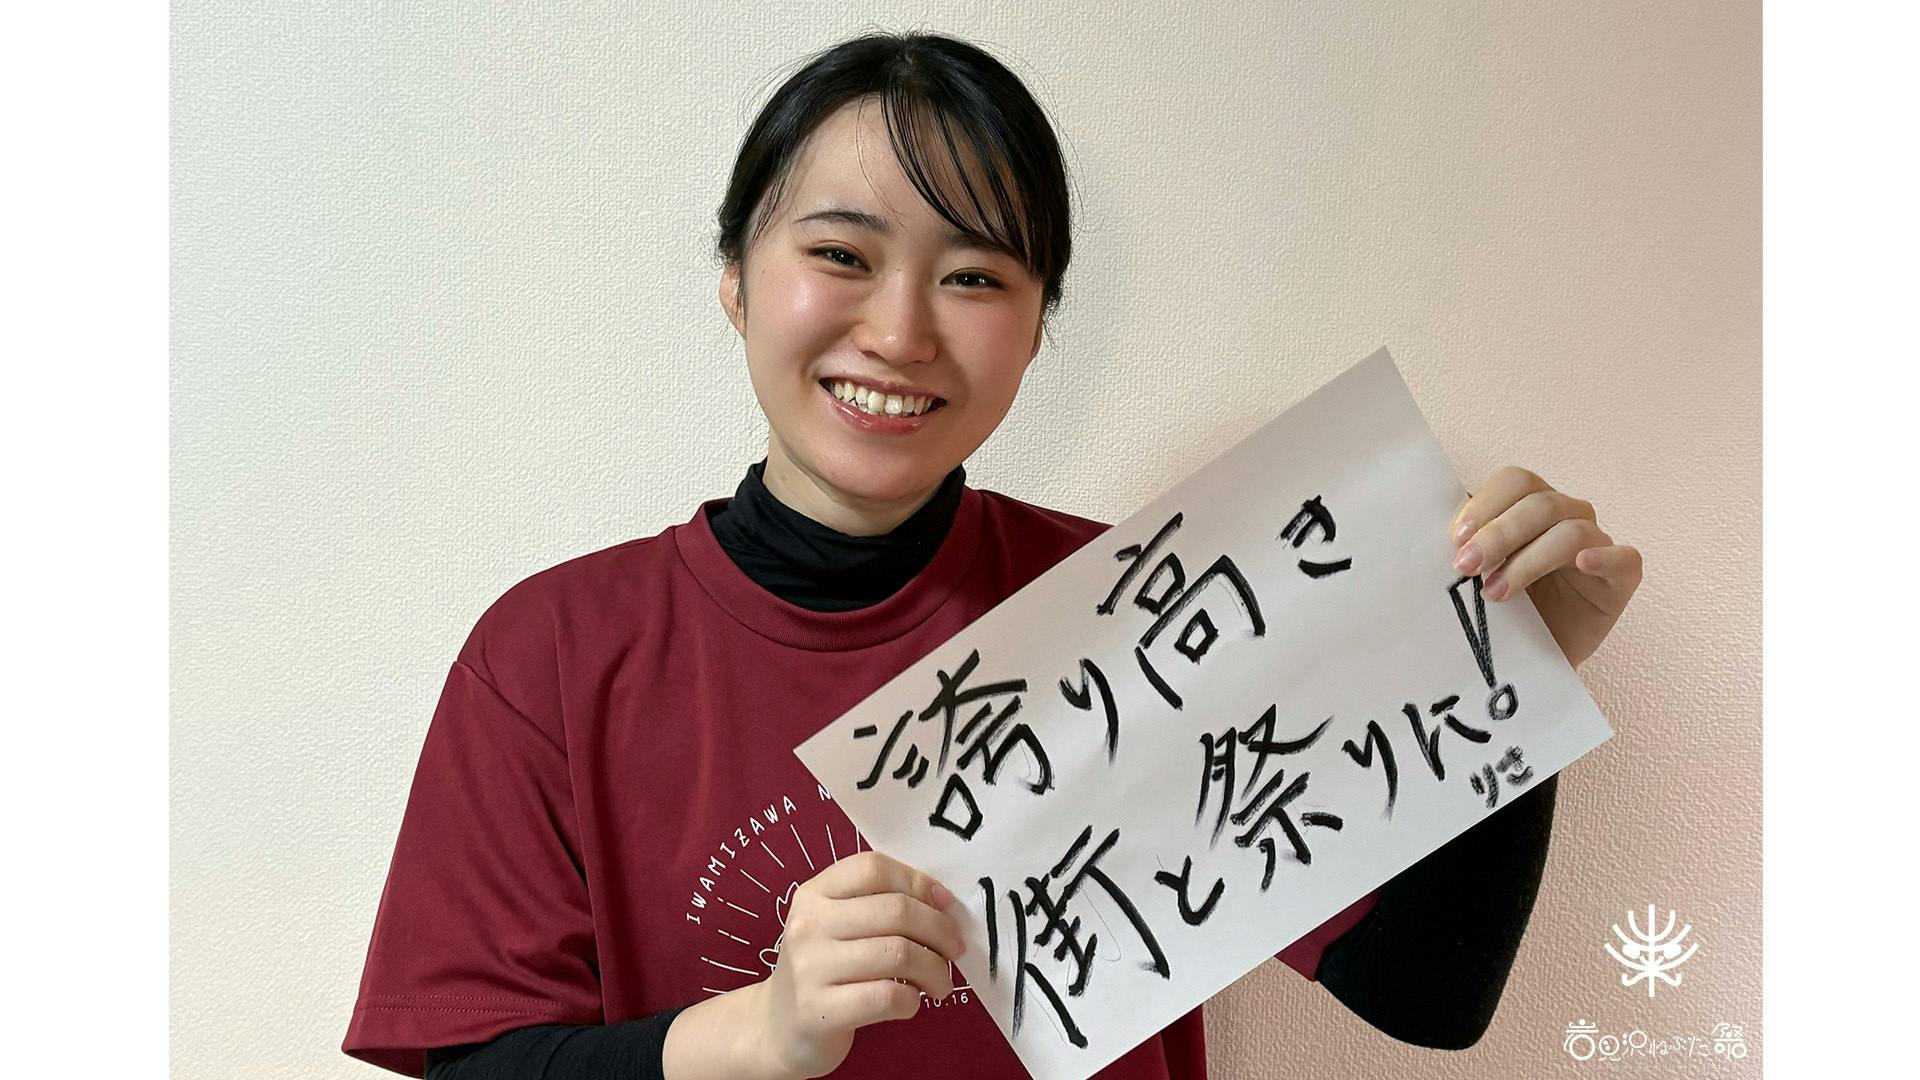 誇り高き
街と祭りに!
りさ
IWAMIZAWA N
10.16
岩見沢ねぶた祭